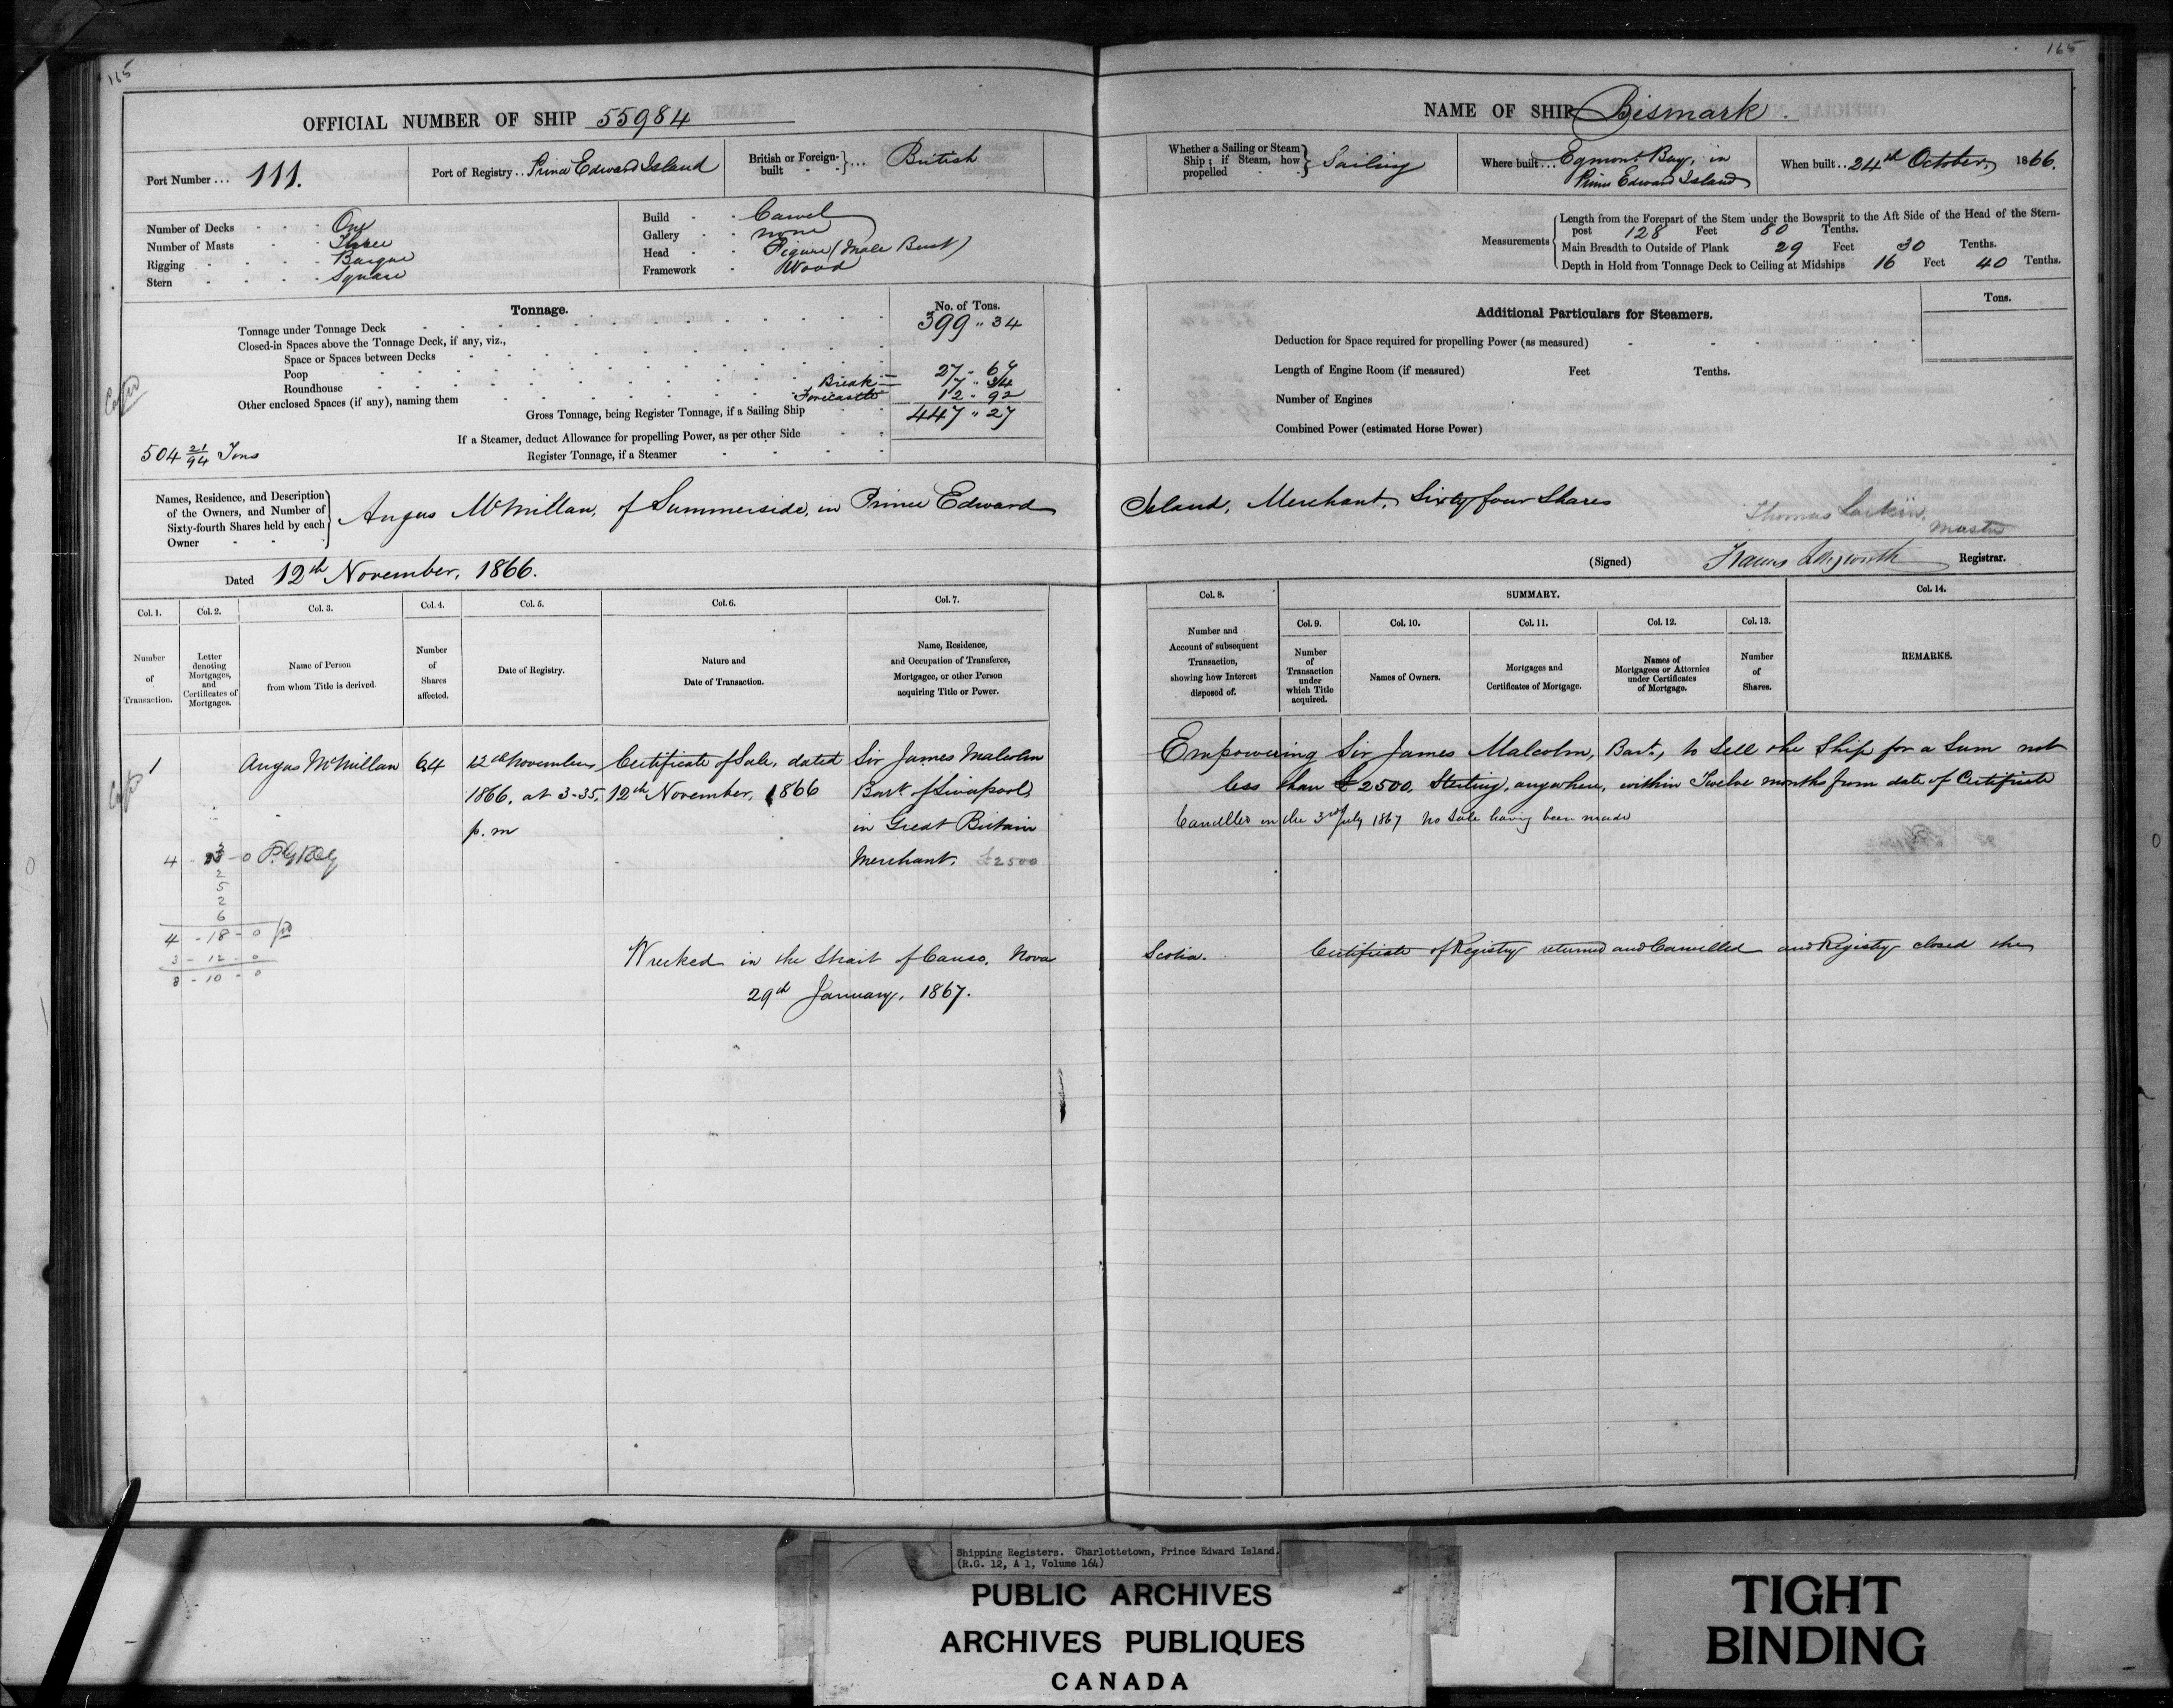 165
OFFICIAL NUMBER OF SHIP 55984
Port Number ... 111.
Port of Registry .. Prince Edward Island
British or Foreign-built ... British
Number of Decks One
Number of Masts Three
Rigging Barque
Stern Square
Build Carvel
Gallery none
Head Figure (Male Bust)
Framework Wood
Tonnage.
No. of Tons.
Tonnage under Tonnage Deck 399 " 34
Closed-in Spaces above the Tonnage Deck, if any, viz.,
Space or Spaces between Decks
Poop 27 " 67
Roundhouse Break 17 " 34
Other enclosed Spaces (if any), naming them Forecastle 12 " 92
Gross Tonnage, being Register Tonnage, if a Sailing Ship 447 " 27
If a Steamer, deduct Allowance for propelling Power, as per other Side
504 21/94 Tons
Register Tonnage, if a Steamer
Names, Residence, and Description of the Owners, and Number of Sixty-fourth Shares held by each Owner
Angus McMillan, of Summerside, in Prince Edward
Dated 12th November, 1866.
Col. 1.
Number of Transaction.
Col. 2.
Letter denoting Mortgages, and Certificates of Mortgages.
Col. 3.
Name of Person from whom Title is derived.
Col. 4.
Number of Shares affected.
Col. 5.
Date of Registry.
Col. 6.
Nature and Date of Transaction.
Col. 7.
Name, Residence, and Occupation of Transferee, Mortgagee, or other Person acquiring Title or Power.
1
Angus McMillan
64
12th November
1866, at 3-35,
p.m
Certificate of Sale, dated
12th November, 1866
Sir James Malcolm
Bart of Liverpool,
in Great Britain
Merchant. £2500
2
5
2
6
4 - 18 - 0
3 - 12 - 0
8 - 10 - 0
Wrecked in the Strait of Canso, Nova
29th January, 1867.
165
NAME OF SHIP Bismark.
Whether a Sailing or Steam Ship; if Steam, how propelled Sailing
Where built ... Egmont Bay, in
Prince Edward Island
When built .. 24th October, 1866.
Measurements
Length from the Forepart of the Stem under the Bowsprit to the Aft Side of the Head of the Stern-
post 128 Feet 80 Tenths.
Main Breadth to Outside of Plank 29 Feet 30 Tenths.
Depth in Hold from Tonnage Deck to Ceiling at Midships 16 Feet 40 Tenths.
Additional Particulars for Steamers.
Tons.
Deduction for Space required for propelling Power (as measured)
Length of Engine Room (if measured) Feet Tenths.
Number of Engines
Combined Power (estimated Horse Power)
Island, Merchant, Sixty four Shares
Thomas Larkin,
Master
(Signed) Registrar.
Col. 8.
Number and Account of subsequent Transaction, showing how Interest disposed of.
SUMMARY.
Col. 9.
Number of Transaction under which Title acquired.
Col. 10.
Names of Owners.
Col. 11.
Mortgages and Certificates of Mortgage.
Col. 12.
Names of Mortgagees or Attornies under Certificates of Mortgage.
Col. 13.
Number of Shares.
Col. 14.
REMARKS.
Empowering Sir James Malcolm, Bart, to Sell the Ship for a Sum not
less than £2500, Sterling, anywhere, within Twelve months from date of Certificate
Cancelled on the 3rd July 1867 No Sale having been made
Scotia. Certificate of Registry returned and Cancelled and Registry closed the
Shipping Registers. Charlottetown, Prince Edward Island.
(R.G. 12, A 1, Volume 164)
PUBLIC ARCHIVES
ARCHIVES PUBLIQUES
CANADA
TIGHT
BINDING